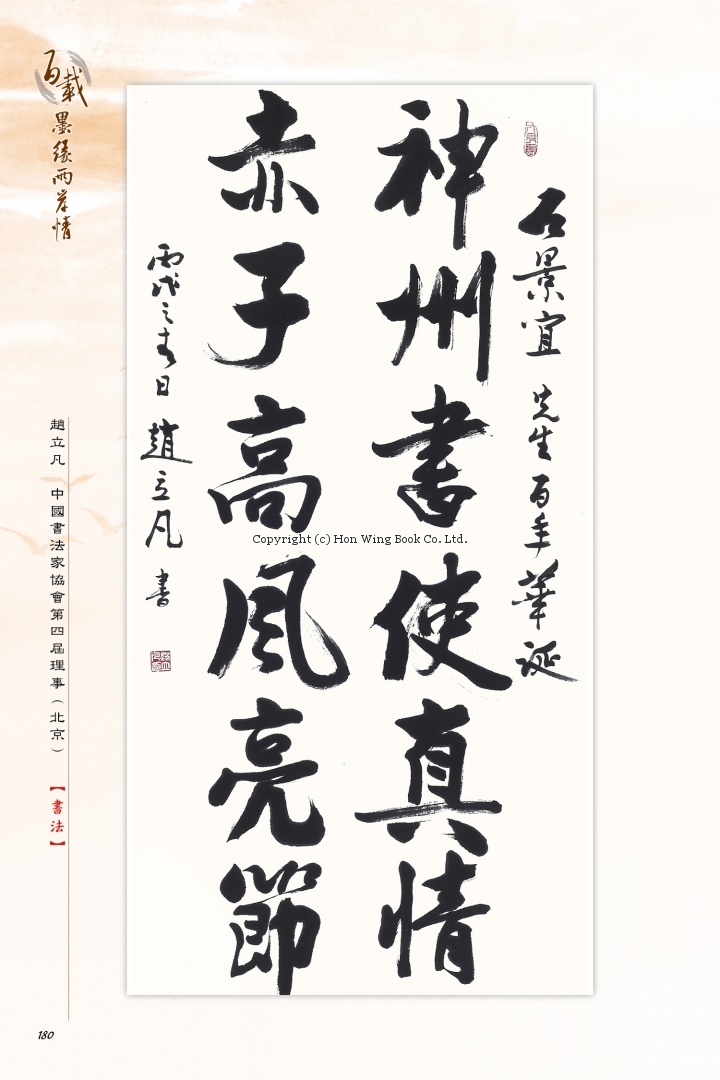 百載墨緣兩岸情
石景宜先生百年華誕
神州書使真情
赤子高風亮節
丙戌之春日 趙立凡書
趙立凡 中國書法家協會第四屆理事（北京）
【書法】
Copyright (c) Hon Wing Book Co. Ltd.
180